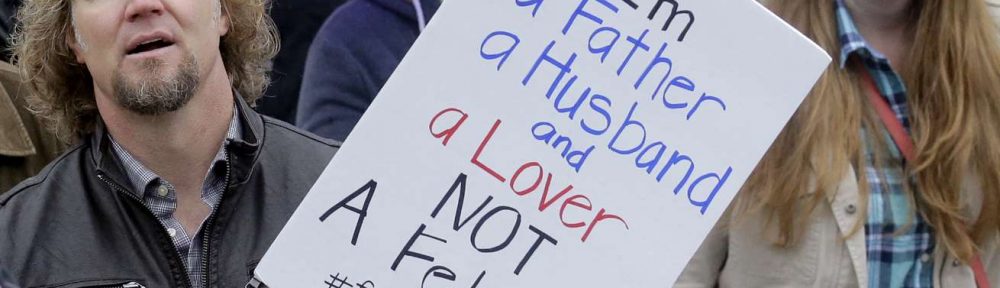 I'm
a Father
a Husband
and
a Lover
A NOT